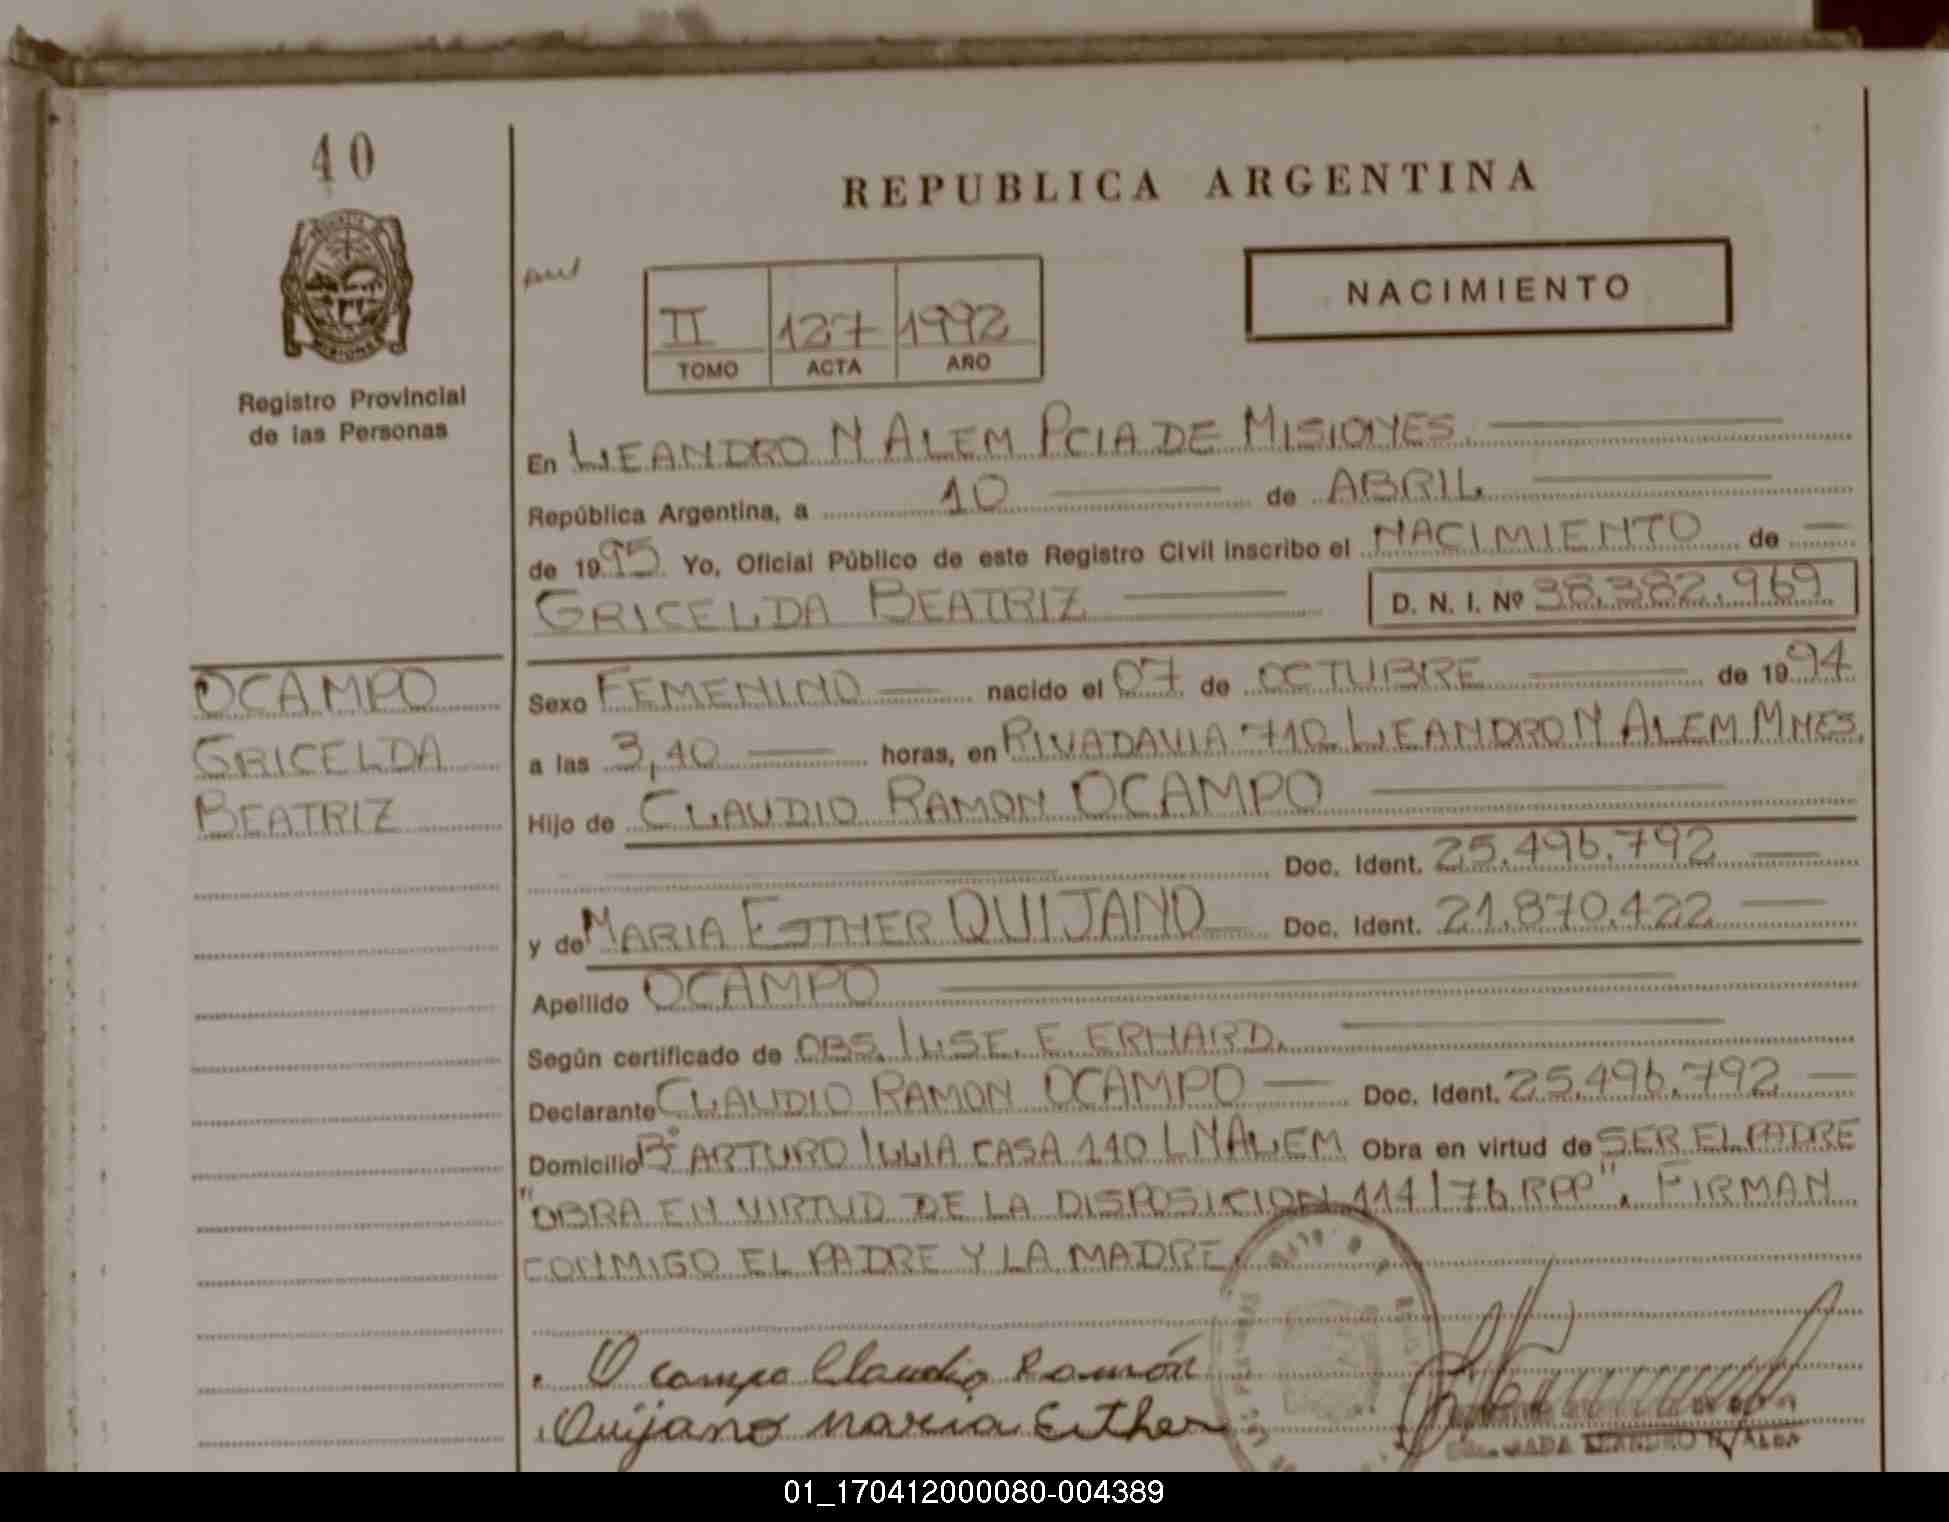 40
REPUBLICA ARGENTINA
NACIMIENTO
II 127 1992
TOMO ACTA AÑO
MISIONES
Registro Provincial
de las Personas
En LEANDRO N ALEM PCIA DE MISIONES.
República Argentina, a 10 de ABRIL
de 1995 Yo, Oficial Público de este Registro Civil inscribo el NACIMIENTO de
GRICELDA BEATRIZ D. N. I. Nº 38.382.969
OCAMPO
GRICELDA
BEATRIZ
Sexo FEMENINO nacido el 07 de OCTUBRE de 1994
a las 3,40 horas, en RIVADAVIA 710 LEANDRO N ALEM MNES.
Hijo de CLAUDIO RAMON OCAMPO
Doc. Ident. 25.496.792
y de MARIA ESTHER QUIJANO Doc. Ident. 21.870.422
Apellido OCAMPO
Según certificado de OBS. ILSE. E ERHARD.
Declarante CLAUDIO RAMON OCAMPO Doc. Ident. 25.496.792
Domicilio Bº ARTURO ILLIA CASA 110 L N ALEM Obra en virtud de SER EL PADRE
"OBRA EN VIRTUD DE LA DISPOSICION 114/76 RPP". FIRMAN
CONMIGO EL PADRE Y LA MADRE.
Ocampo Claudio Ramón
Quijano Maria Esther
LEANDRO N. ALEM
01_170412000080-004389